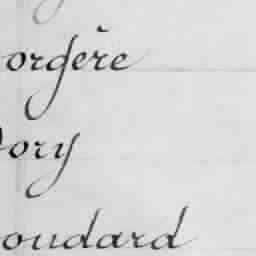 orgère
ory
oudard